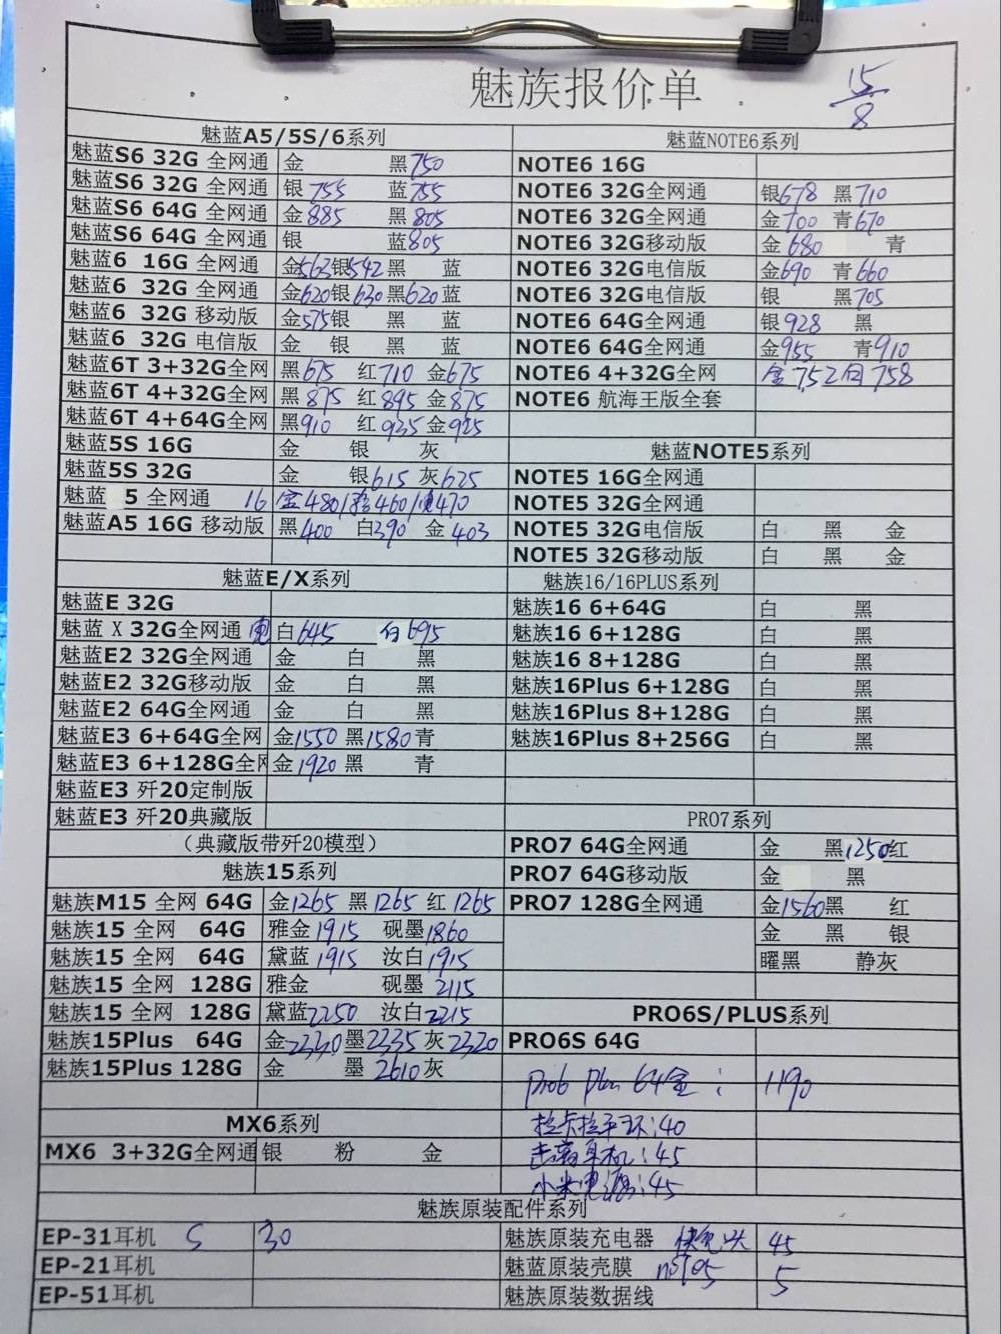 魅族报价单
15/8
魅蓝A5/5S/6系列
魅蓝S6 32G 全网通 金 黑750
魅蓝S6 32G 全网通 银755 蓝755
魅蓝S6 64G 全网通 金885 黑805
魅蓝S6 64G 全网通 银 蓝805
魅蓝6 16G 全网通 金563银542黑 蓝
魅蓝6 32G 全网通 金620银630黑620蓝
魅蓝6 32G 移动版 金575银 黑 蓝
魅蓝6 32G 电信版 金 银 黑 蓝
魅蓝6T 3+32G全网 黑675 红710 金675
魅蓝6T 4+32G全网 黑875 红895 金875
魅蓝6T 4+64G全网 黑910 红935金925
魅蓝5S 16G 金 银 灰
魅蓝5S 32G 金 银615 灰625
魅蓝 5 全网通 16 金480 460 470
魅蓝A5 16G 移动版 黑400 白390 金403
魅蓝E/X系列
魅蓝E 32G
魅蓝 X 32G全网通 白645 白695
魅蓝E2 32G全网通 金 白 黑
魅蓝E2 32G移动版 金 白 黑
魅蓝E2 64G全网通 金 白 黑
魅蓝E3 6+64G全网 金1550黑1580青
魅蓝E3 6+128G全网 金1920黑 青
魅蓝E3 歼20定制版
魅蓝E3 歼20典藏版
（典藏版带歼20模型）
魅族15系列
魅族M15 全网 64G 金1265 黑1265 红1265
魅族15 全网 64G 雅金1915 砚墨1860
魅族15 全网 64G 黛蓝1915 汝白1915
魅族15 全网 128G 雅金 砚墨2115
魅族15 全网 128G 黛蓝2250 汝白2215
魅族15Plus 64G 金2330墨2335灰2320
魅族15Plus 128G 金 墨2610灰
MX6系列
MX6 3+32G全网通 银 粉 金
魅蓝NOTE6系列
NOTE6 16G
NOTE6 32G全网通 银678 黑710
NOTE6 32G全网通 金700 青670
NOTE6 32G移动版 金680 青
NOTE6 32G电信版 金690 青660
NOTE6 32G电信版 银 黑705
NOTE6 64G全网通 银928 黑
NOTE6 64G全网通 金955 青910
NOTE6 4+32G全网 金752 758
NOTE6 航海王版全套
魅蓝NOTE5系列
NOTE5 16G全网通
NOTE5 32G全网通
NOTE5 32G电信版 白 黑 金
NOTE5 32G移动版 白 黑 金
魅族16/16PLUS系列
魅族16 6+64G 白 黑
魅族16 6+128G 白 黑
魅族16 8+128G 白 黑
魅族16Plus 6+128G 白 黑
魅族16Plus 8+128G 白 黑
魅族16Plus 8+256G 白 黑
PRO7系列
PRO7 64G全网通 金 黑1250红
PRO7 64G移动版 金 黑
PRO7 128G全网通 金1560黑 红
金 黑 银
曜黑 静灰
PRO6S/PLUS系列
PRO6S 64G
Pro6 Plus 64金： 1190
拉卡拉手环:40
耳机:45
小米电源:45
魅族原装配件系列
EP-31耳机 S 30
EP-21耳机
EP-51耳机
魅族原装充电器 快充头 45
魅蓝原装壳膜 note5 5
魅族原装数据线